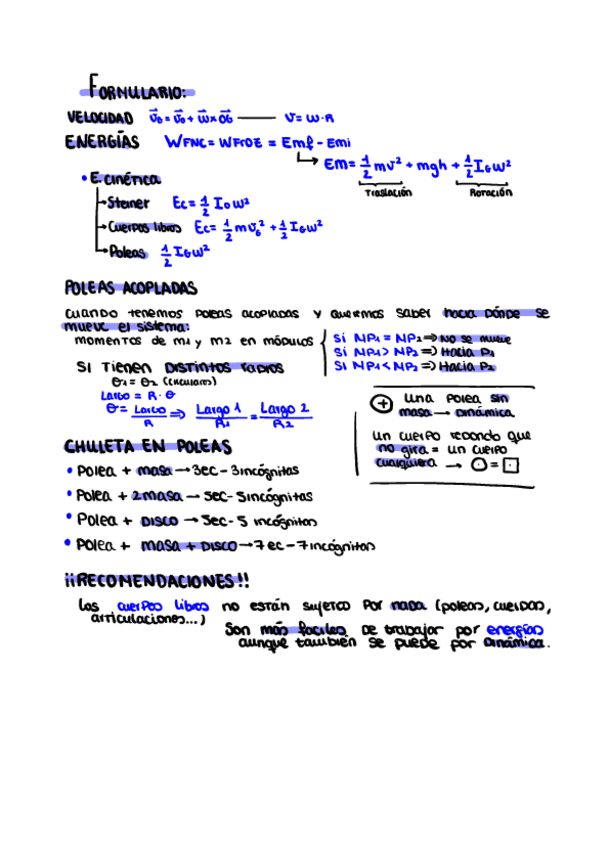 FORMULARIO:
VELOCIDAD v⃗₆ = v⃗₀ + w⃗ × OG —— v = w · R
ENERGÍAS WFNC = WFroz = Emf - Emi
↳ Em = 1/2 mv² + mgh + 1/2 IGw²
Traslación Rotación
• E. cinética
→ Steiner Ec = 1/2 I₀w²
→ Cuerpos libres Ec = 1/2 mv₆² + 1/2 IGw²
→ Poleas 1/2 IGw²
POLEAS ACOPLADAS
Cuando tenemos poleas acopladas y queremos saber hacia dónde se
mueve el sistema:
momentos de m1 y m2 en módulos
Si MP1 = MP2 => No se mueve
Si MP1 > MP2 => Hacia P1
Si MP1 < MP2 => Hacia P2
Si tienen distintos radios
θ1 = θ2 (circulares)
Largo = R · θ
θ = Largo/R => Largo 1/R1 = Largo 2/R2
+ una polea sin
masa → dinámica
un cuerpo redondo que
no gira = un cuerpo
cualquiera → ○ = □
CHULETA EN POLEAS
• Polea + masa → 3ec - 3incógnitas
• Polea + 2masa → 5ec - 5incógnitas
• Polea + disco → 5ec - 5 incógnitas
• Polea + masa + disco → 7 ec - 7 incógnitas
¡¡RECOMENDACIONES!!
Los cuerpos libres no están sujetos por nada (poleas, cuerdas,
articulaciones...)
Son más faciles de trabajar por energías
aunque también se puede por dinámica.